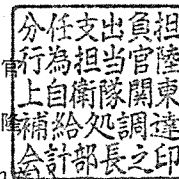 分任支出負担
行為担当官陸
上自衛隊関東
補給処調達
会計部長之印
官